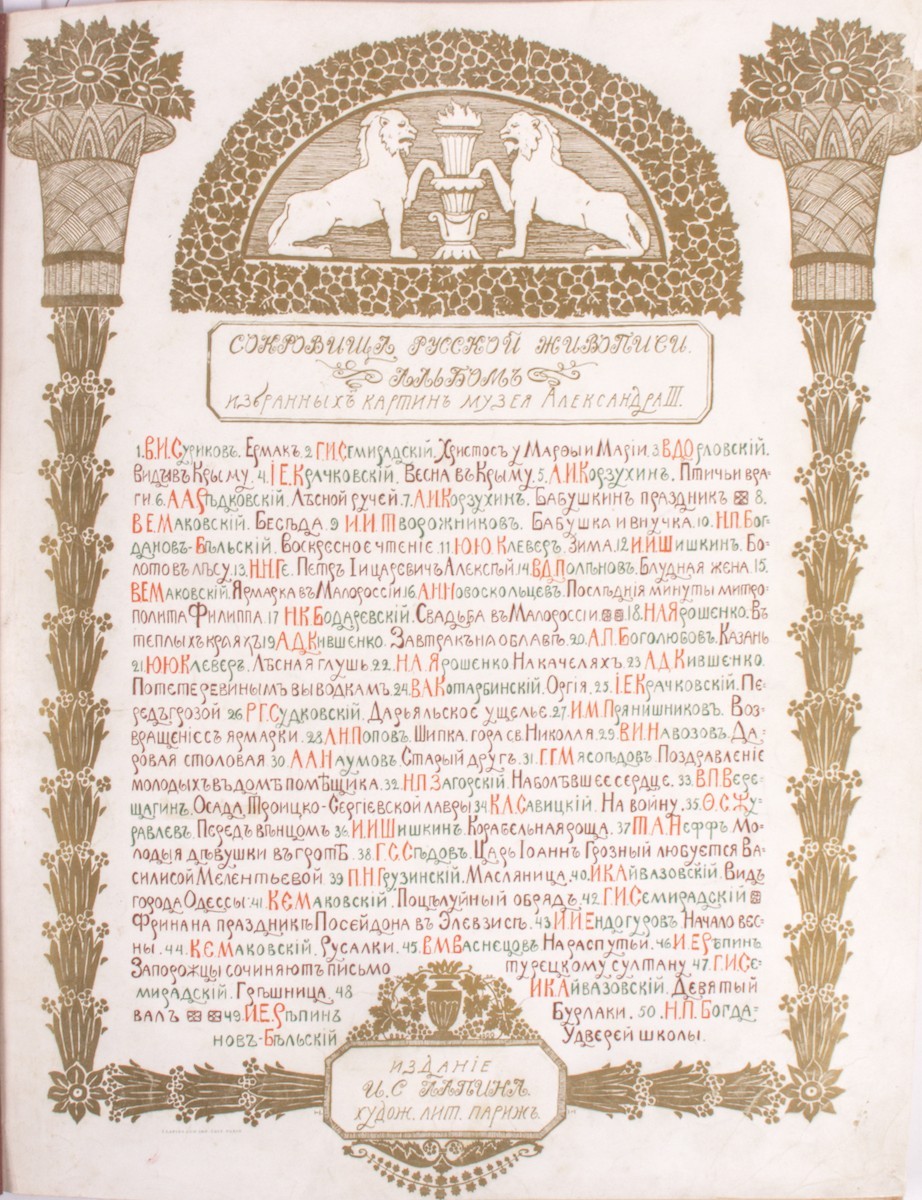 СОКРОВИЩА РУССКОЙ ЖИВОПИСИ.
АЛЬБОМЪ
ИЗБРАННЫХЪ КАРТИНЪ МУЗЕЯ АЛЕКСАНДРА III.
1. В.И.Суриковъ. Ермакъ. 2 Г.И.Семирадскій. Христосъ у Марѳы и Маріи. 3 В.Д.Орловскій.
Видъ въ Крыму. 4. І.Е.Крачковскій. Весна въ Крыму. 5. А.И.Корзухинъ. Птичьи вра-
ги. 6. А.А.Рѣдковскій. Лѣсной ручей. 7. А.И.Корзухинъ. Бабушкинъ праздникъ 8.
В.Е.Маковскій. Бесѣда. 9 И.И.Творожниковъ. Бабушка и внучка. 10. Н.П.Бог-
дановъ-Бѣльскій. Воскресное чтеніе. 11 Ю.Ю.Клеверъ. Зима. 12 И.И.Шишкинъ. Бо-
лото въ лѣсу. 13. Н.Н.Ге. Петръ I и царевичъ Алексѣй 14. В.Д.Полѣновъ. Блудная жена. 15.
В.Е.Маковскій. Ярмарка въ Малороссіи. 16. А.Н.Новоскольцевъ. Послѣднія минуты митро-
полита Филиппа. 17 Н.К.Бодаревскій. Свадьба въ Малороссіи 18. Н.А.Ярошенко. Въ
теплыхъ краяхъ 19 А.Д.Кившенко. Завтракъ на облавѣ. 20. А.П.Боголюбовъ. Казань
21. Ю.Ю.Клеверъ. Лѣсная глушь. 22. Н.А.Ярошенко На качеляхъ. 23 А.Д.Кившенко.
По тетеревинымъ выводкамъ. 24. В.А.Котарбинскій. Оргія. 25. І.Е.Крачковскій. Пе-
редъ грозой 26 Р.Г.Судковскій. Дарьяльское ущелье. 27. И.М.Прянишниковъ. Воз-
вращеніе съ ярмарки. 28. А.Н.Поповъ. Шипка. гора св. Николая. 29. В.И.Навозовъ. Да-
ровая столовая. 30. А.А.Наумовъ. Старый другъ. 31. Г.Г.Мясоѣдовъ. Поздравленіе
молодыхъ въ домѣ помѣщика. 32. Н.П.Загорскій. Наболѣвшее сердце. 33. В.П.Вере-
щагинъ. Осада Троицко-Сергіевской лавры 34. К.А.Савицкій. На войну. 35. Ѳ.С.Жу-
равлевъ. Передъ вѣнцомъ 36. И.И.Шишкинъ. Корабельная роща. 37 Т.А.Неффъ Мо-
лодыя дѣвушки въ гротѣ. 38. Г.С.Сѣдовъ. Царь Іоаннъ Грозный любуется Ва-
силисой Мелентьевой. 39 П.Н.Грузинскій. Масляница. 40. И.К.Айвазовскій. Видъ
города Одессы. 41. К.Е.Маковскій. Поцѣлуйный обрядъ. 42. Г.И.Семирадскій
Фрина на праздникѣ Посейдона въ Элевзисѣ. 43 И.И.Ендогуровъ. Начало вес-
ны. 44. К.Е.Маковскій. Русалки. 45. В.М.Васнецовъ На распутьи. 46. И.Е.Рѣпинъ
Запорожцы сочиняютъ письмо турецкому султану 47. Г.И.Се-
мирадскій. Грѣшница. 48 И.К.Айвазовскій. Девятый
валъ 49. И.Е.Рѣпинъ Бурлаки. 50. Н.П.Богда-
новъ-Бѣльскій У дверей школы.
ИЗДАНІЕ
И.С ЛАПИНА.
ХУДОЖ. ЛИТ. ПАРИЖЪ.